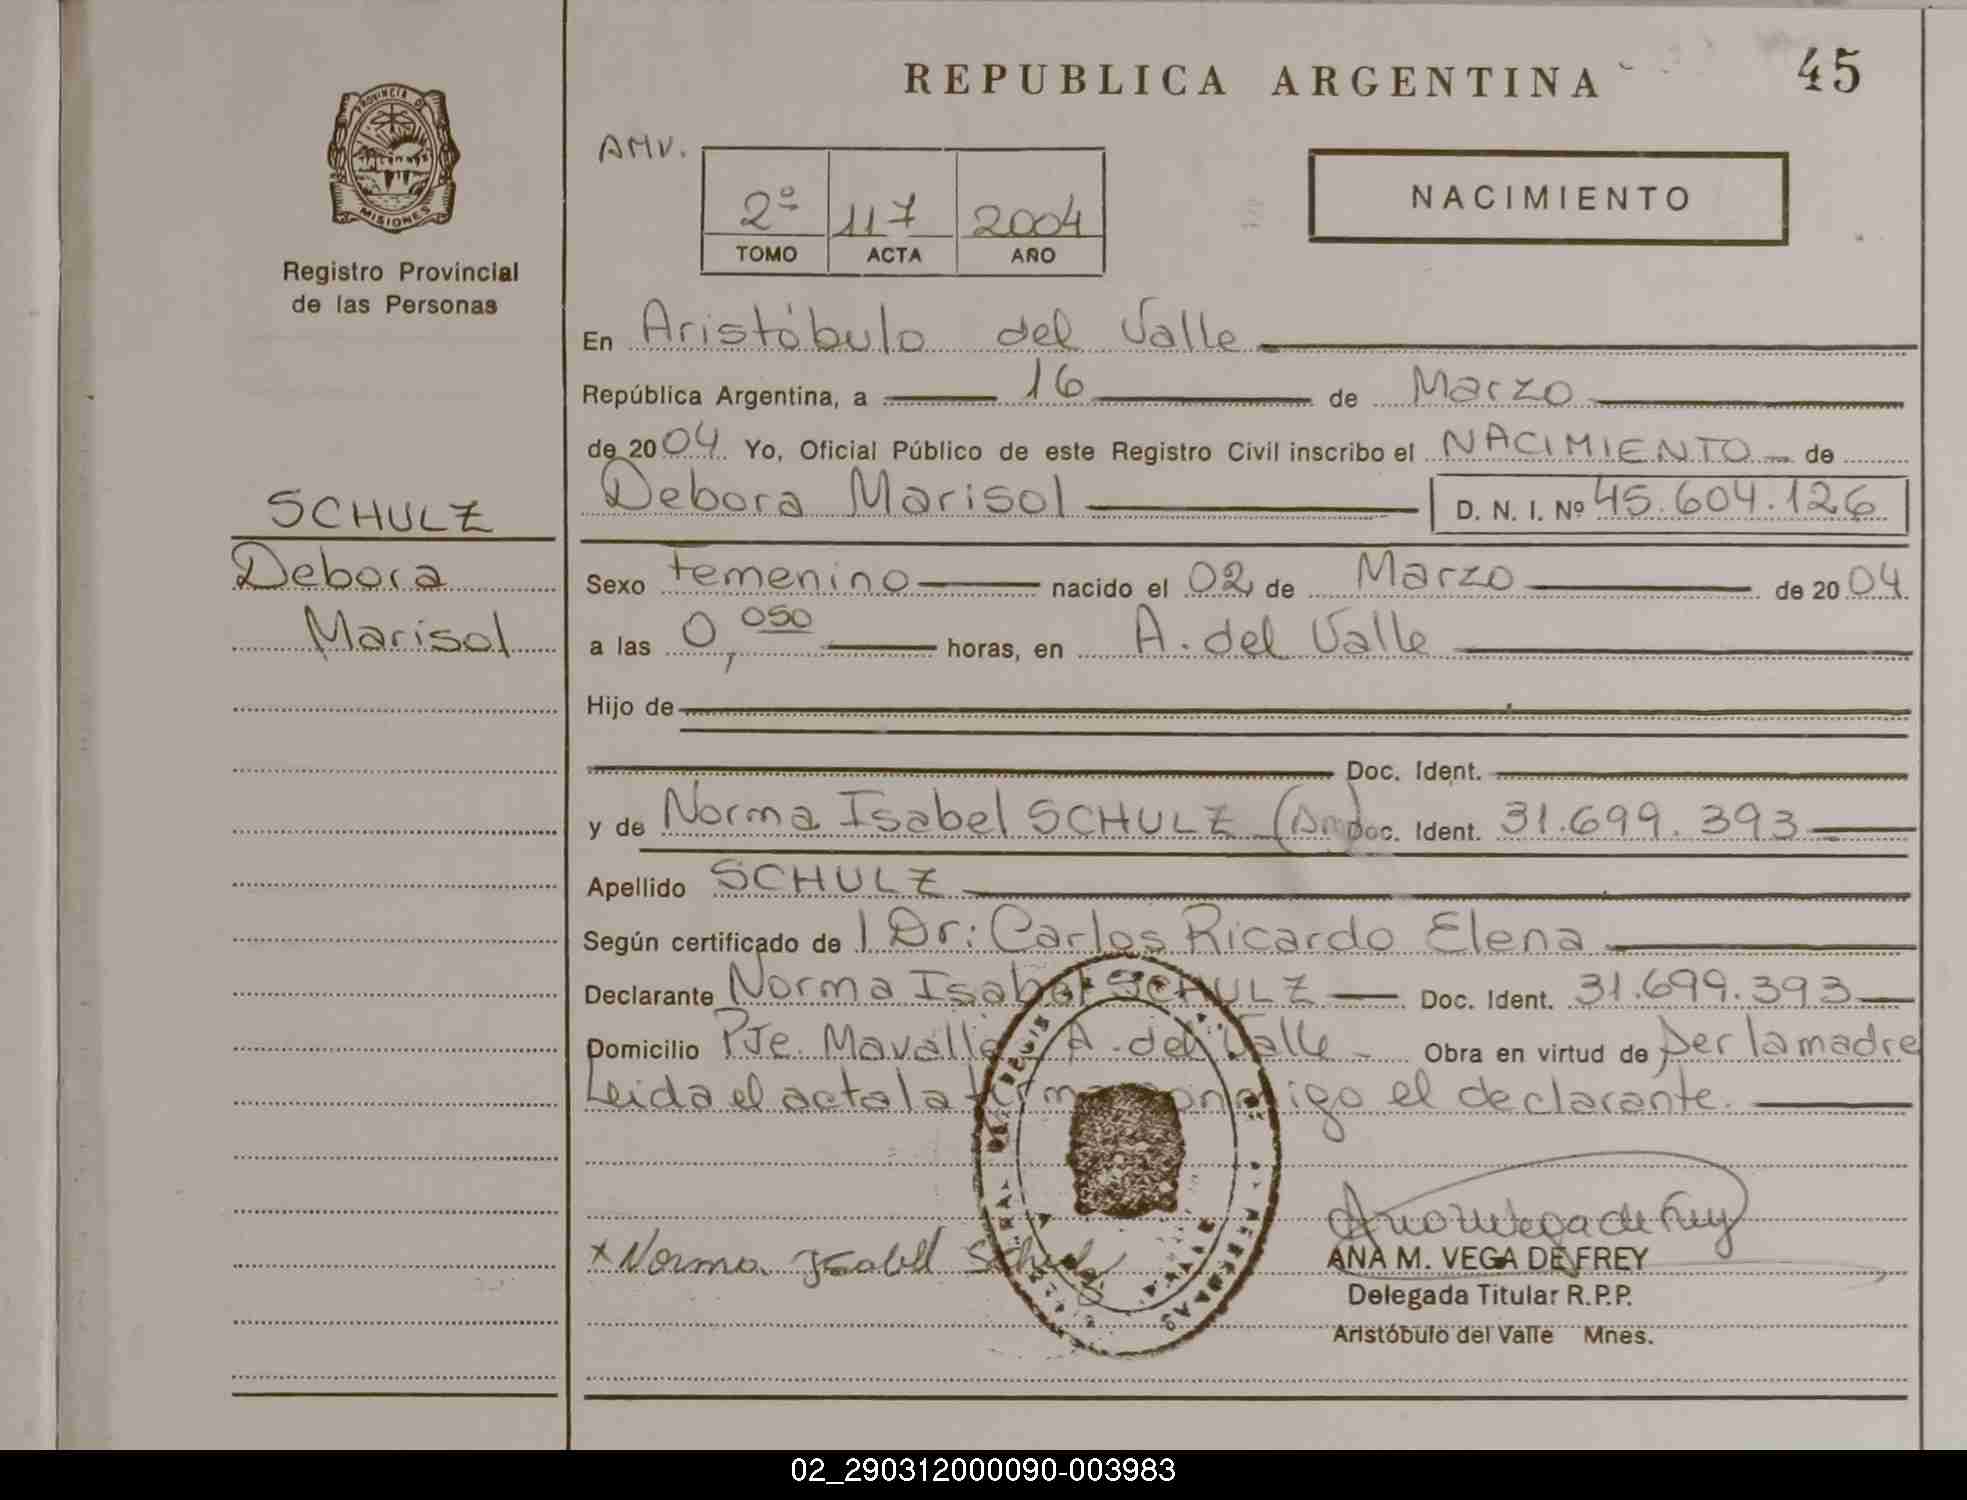 REPUBLICA ARGENTINA
45
PROVINCIA DE
MISIONES
Registro Provincial
de las Personas
AMV.
2º 117 2004
TOMO ACTA AÑO
NACIMIENTO
En Aristóbulo del Valle
República Argentina, a 16 de Marzo
de 2004 Yo, Oficial Público de este Registro Civil inscribo el NACIMIENTO de
Debora Marisol D. N. I. Nº 45.604.126
SCHULZ
Debora
Marisol
Sexo femenino nacido el 02 de Marzo de 2004
a las 0,050 horas, en A. del Valle
Hijo de
Doc. Ident.
y de Norma Isabel SCHULZ Doc. Ident. 31.699.393
Apellido SCHULZ
Según certificado de l Dr: Carlos Ricardo Elena
Declarante Norma Isabel SCHULZ Doc. Ident. 31.699.393
Domicilio Pje. Mavalle A. del Valle Obra en virtud de ser la madre
Leida el acta la firma conmigo el declarante.
x Norma Isabel Schulz
ANA M. VEGA DE FREY
Delegada Titular R.P.P.
Aristóbulo del Valle Mnes.
02_290312000090-003983